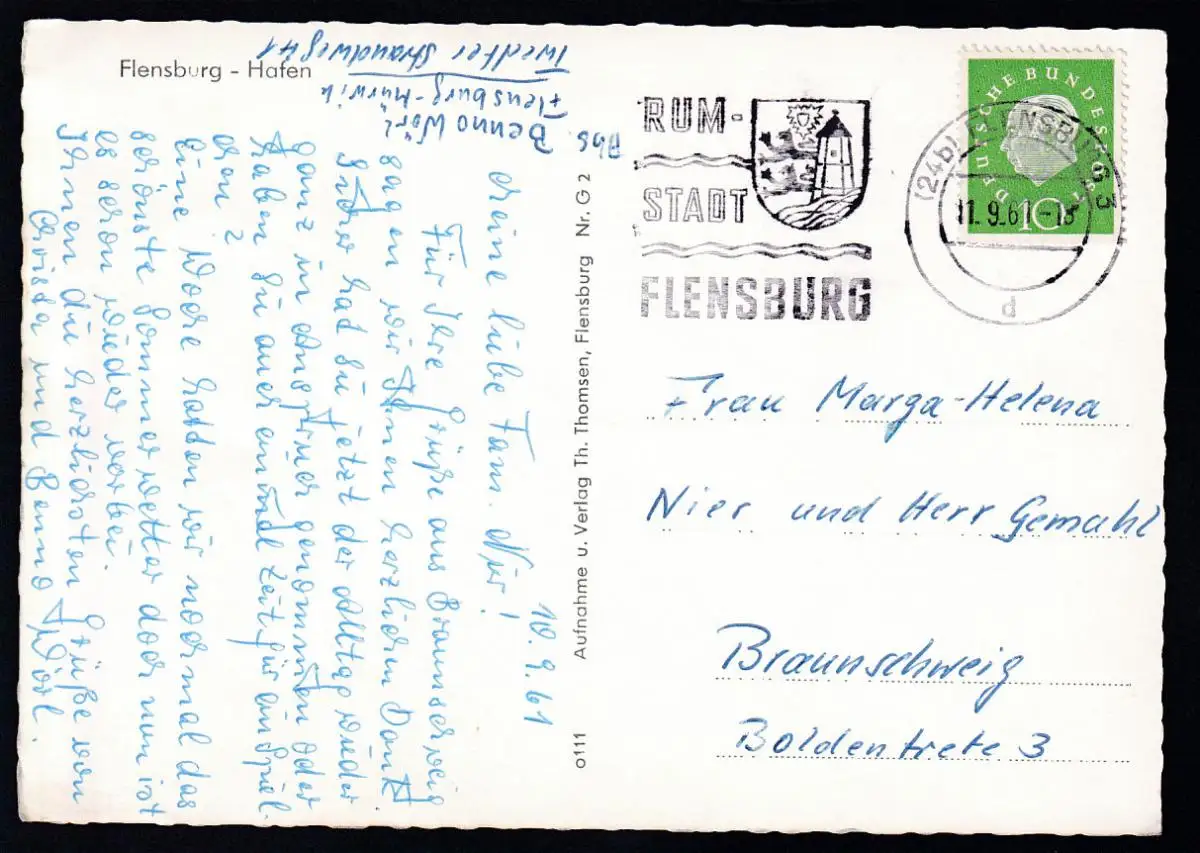 Flensburg - Hafen
Abs. Benno Wörl
Flensburg-Mürwik
Twedter Strandweg 41
10.9.61
Meine liebe Fam. Nier!
Für Ihre Grüße aus Braunschweig
sagen wir Ihnen herzlichen Dank
Sicher hat Sie jetzt der Alltag wieder
ganz in Anspruch genommen oder
haben Sie auch einmal Zeit für ein Spiel-
chen?
Eine Woche hatten wir nochmal das
schönste Sommerwetter doch nun ist
es schon wieder vorbei.
Ihnen die herzlichsten Grüße von
Christa und Benno Wörl.
o111 Aufnahme u. Verlag Th. Thomsen, Flensburg Nr. G 2
RUM-
STADT
FLENSBURG
DEUTSCHE BUNDESPOST
10
(24b) FLENSBURG 3
11.9.61-18
d
Frau Marga-Helena
Nier und Herr Gemahl
Braunschweig
3